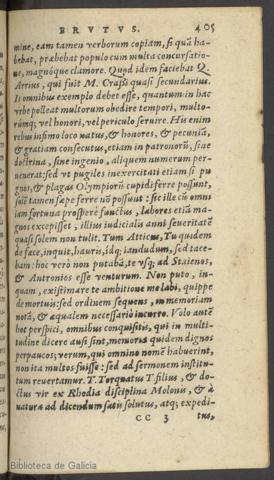 BRVTVS. 405
mine, eam tamen verborum copiam, si quā ha-
bebat, præbebat populo cum multa concursatio-
ne, magnóque clamore. Quod idem faciebat Q.
Arrius, qui fuit M. Crassi quasi secundarius.
Is omnibus exemplo debet esse, quantum in hac
vrbe polleat multorum obedire tempori, multo-
rúmq; vel honori, vel periculo seruire. His enim
rebus infimo loco natus, & honores, & pecuniā,
& gratiam consecutus, etiam in patronorū, sine
doctrina, sine ingenio, aliquem numerum per-
uenerat: sed vt pugiles inexercitati etiam si pu
gnos, & plagas Olympiorū cupidi ferre possunt,
solē tamen sæpe ferre nō possunt: sic ille cū omni
iam fortuna prosperè functus, labores etiā ma-
gnos excepisset, illius iudicialis anni seueritatē
quasi solem non tulit. Tum Atticus, Tu quidem
de fæce, inquit, hauris, idq; iandudum, sed tace-
bam: hoc verò non putabā, te vsq; ad Staienos,
& Antronios esse venturum. Non puto, in-
quam, existimare te ambitione me labi, quippe
de mortuis: sed ordinem sequens, in memoriam
notā, & æqualem necessariò incurro. Volo autē
hoc perspici, omnibus conquisitis, qui in multi-
tudine dicere ausi sint, memoria quidem dignos
perpaucos; verum, qui omnino nomē habuerint,
non ita multos fuisse: sed ad sermonem institu-
tum reuertamur. T. Torquatus T. filius, & do-
ctus vir ex Rhodia disciplina Molonis, & à
natura ad dicendum satis solutus, atq; expedi-
CC 3 tus,
Biblioteca de Galicia